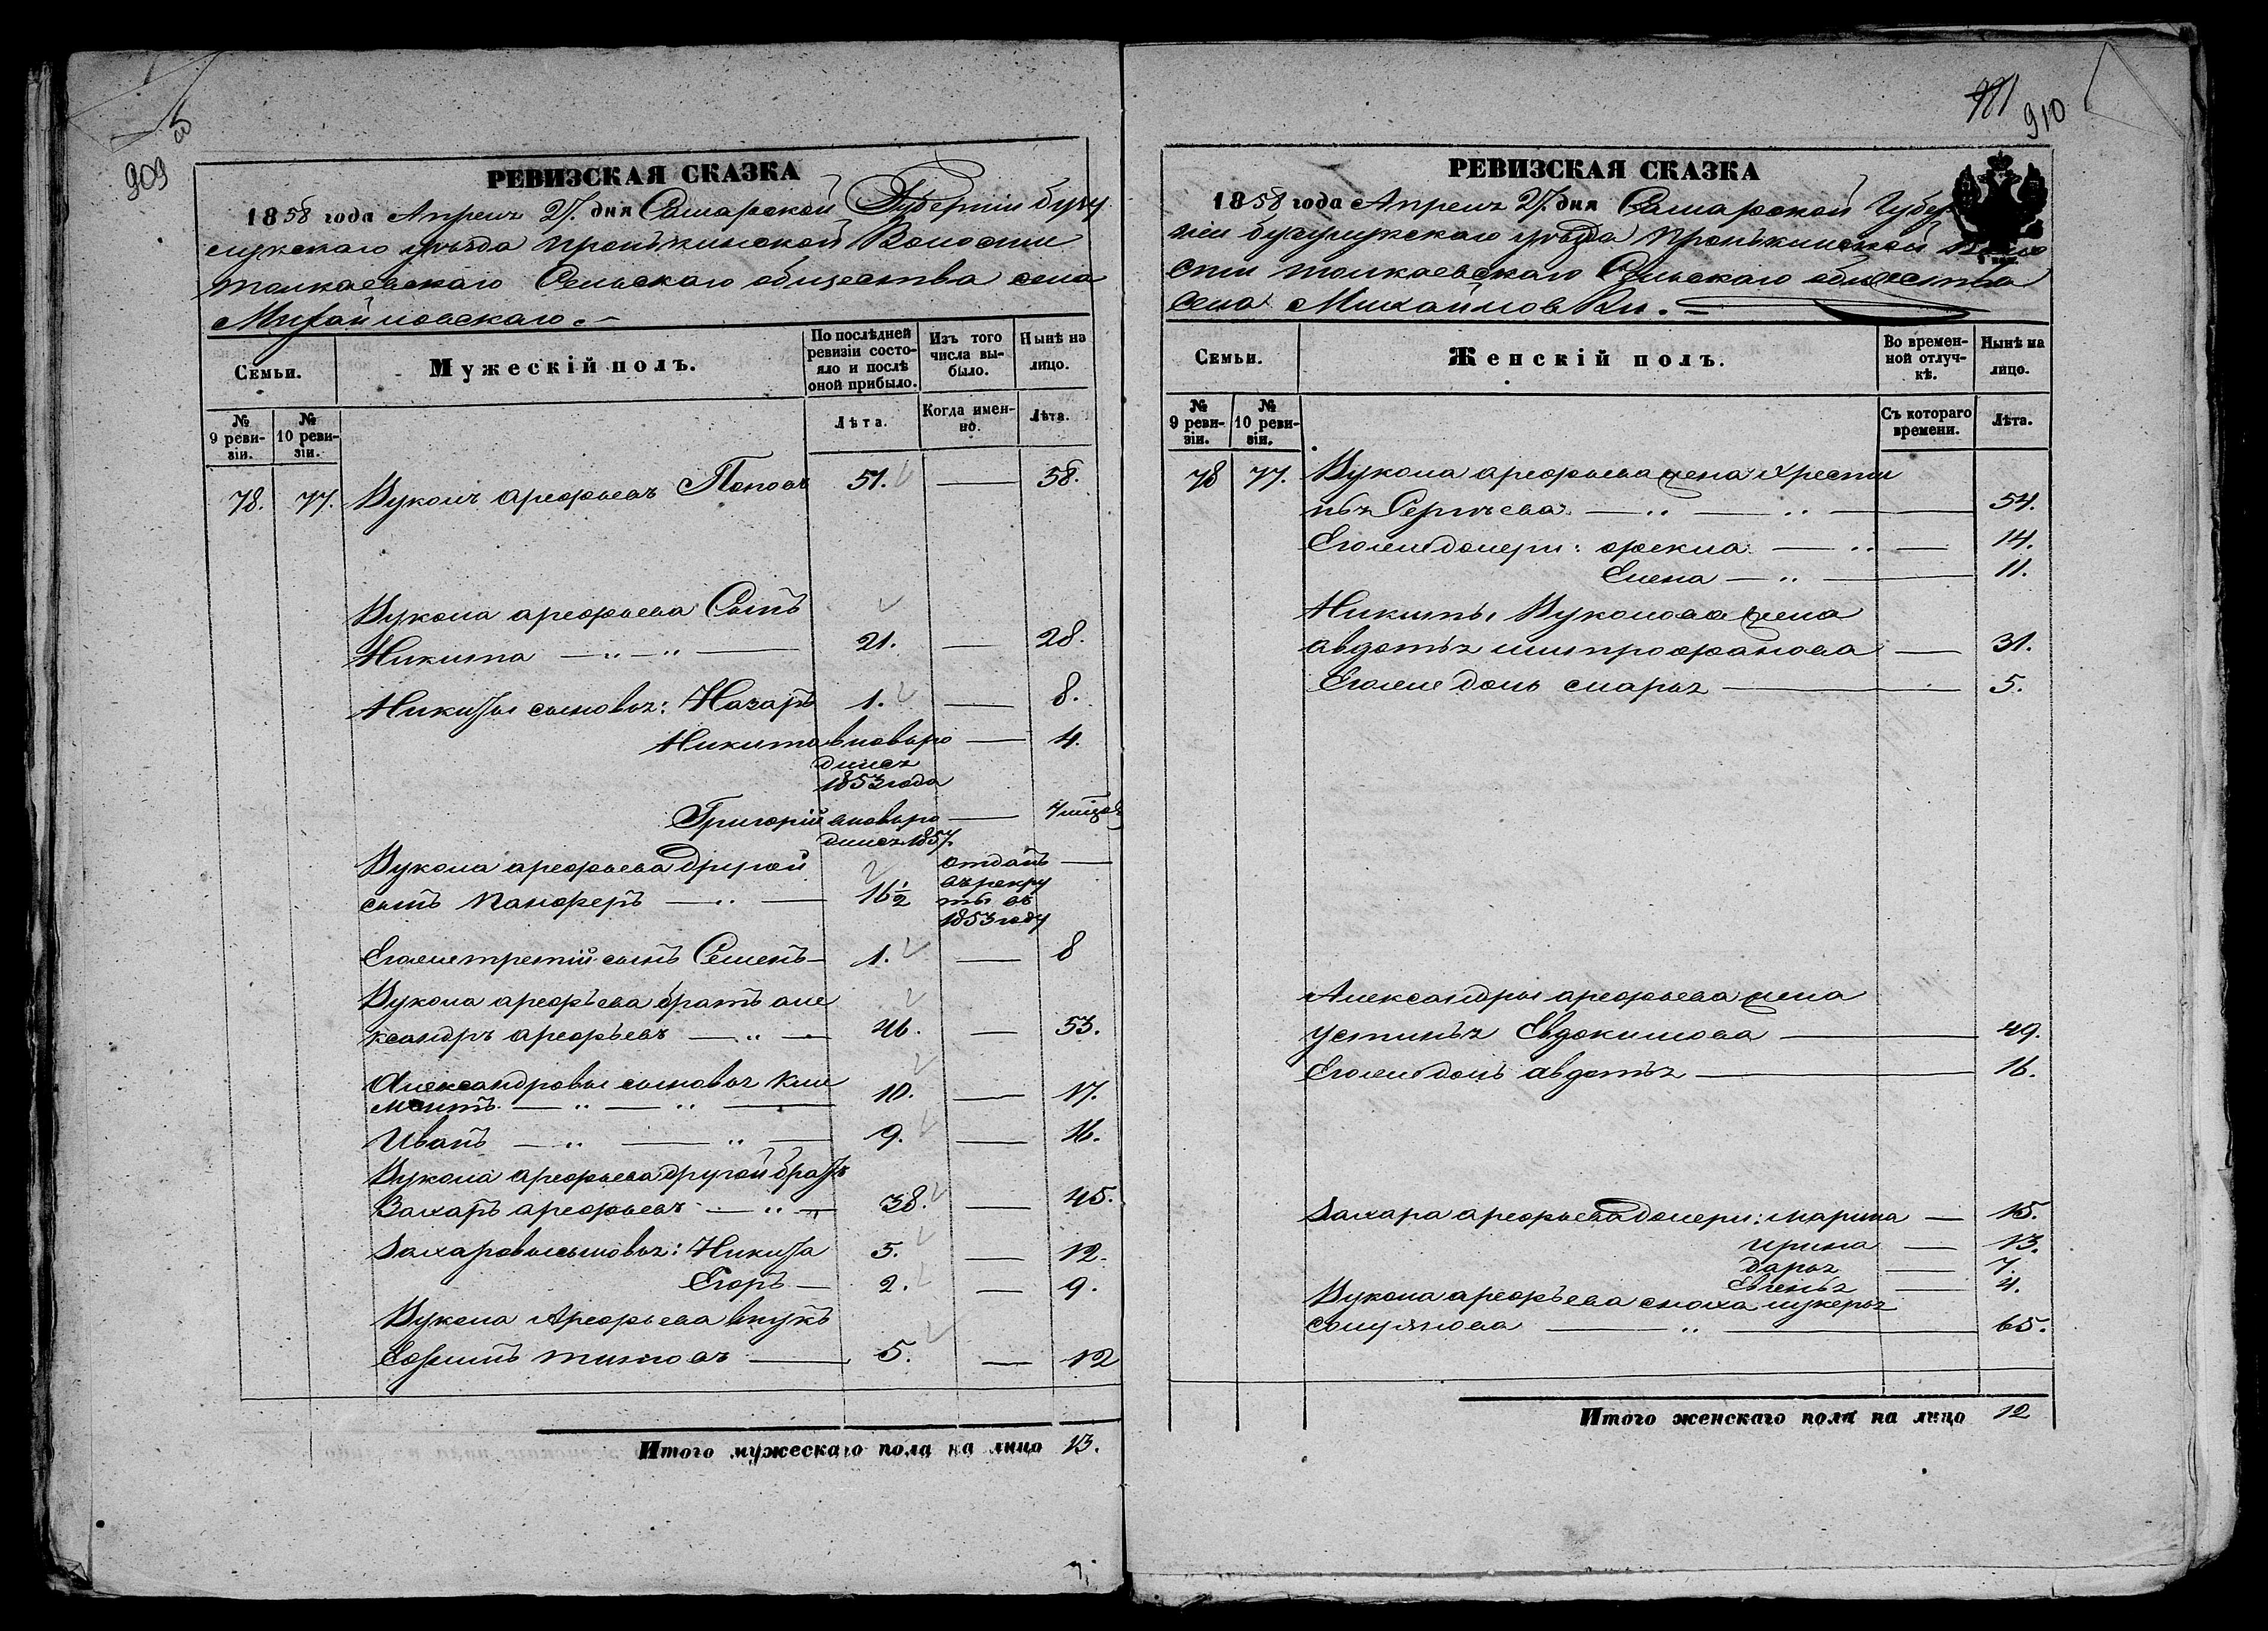 909
РЕВИЗСКАЯ СКАЗКА
1858 года Апреля 27. дня Самарской Губернии бузу
лукскаго уѣзда пронькинской Волости
толкаевскаго Сельскаго общества села
Михайловскаго.
Семьи.
Мужескій полъ.
По послѣдней ревизіи состояло и послѣ оной прибыло.
Изъ того числа выбыло.
Нынѣ на лицо.
№ 9 ревизіи.
№ 10 ревизіи.
Лѣта.
Когда именно.
Лѣта.
78. 77. Вуколъ арефьевъ Поповъ 51. — 58.
Вукола арефьева Сынъ
Никита — „ — „ — 21. — 28.
Никиты сыновья: Назаръ 1. — 8.
Никита вновьро — 4.
дился
1853 года
Григорій вновьро —
дился 1857.
Вукола арефьева другой отданъ —
сынъ Панферъ — „ — 16½ въ рекру
ты въ
1853 году
Еголие третий сынъ Семенъ — 1. — 8
Вукола арефьева братъ але
ксандръ арефьевъ — „ — 46. — 53.
Александровы сыновья Кли
ментъ — „ — „ — 10. — 17.
Иванъ — „ — „ — 9. — 16.
Вукола арефьева другой братъ
Захаръ арефьевъ — „ — 38. — 45.
Захаровы сыновья: Никита 5. — 12.
Егоръ — 2. — 9.
Вукола Арефьева внукъ
Ефимъ титовъ — 5. — 12
Итого мужескаго пола на лицо 13.
910
РЕВИЗСКАЯ СКАЗКА
1858 года Апреля 27. дня Самарской Губер
ніи бузулукскаго уѣзда пронькинской воло
сти толкаевскаго Сельскаго общества
Села Михайловки.
Семьи.
Женскій полъ.
Во временной отлучкѣ.
Нынѣ на лицо.
№ 9 ревизіи.
№ 10 ревизіи.
Съ котораго времени.
Лѣта.
78 77. Вукола арефьева жена христи
нья Сергѣева — „ — „ — 54.
Еголие дочери: фекла — „ — 14.
Елена — „ — 11.
Никиты Вуколова жена
авдотья митрофанова — 31.
Еголие дочь марья — 5.
Александры арефьева жена
устинья Евдокимова — 49.
Еголие дочь авдотья — 16.
Захара арефьева дочери: марина — 15.
ирина — 13.
дарья — 7.
Евгенья — 4.
Вукола арефьева сноха лукерья
— „ — 65.
Итого женскаго пола на лицо 12